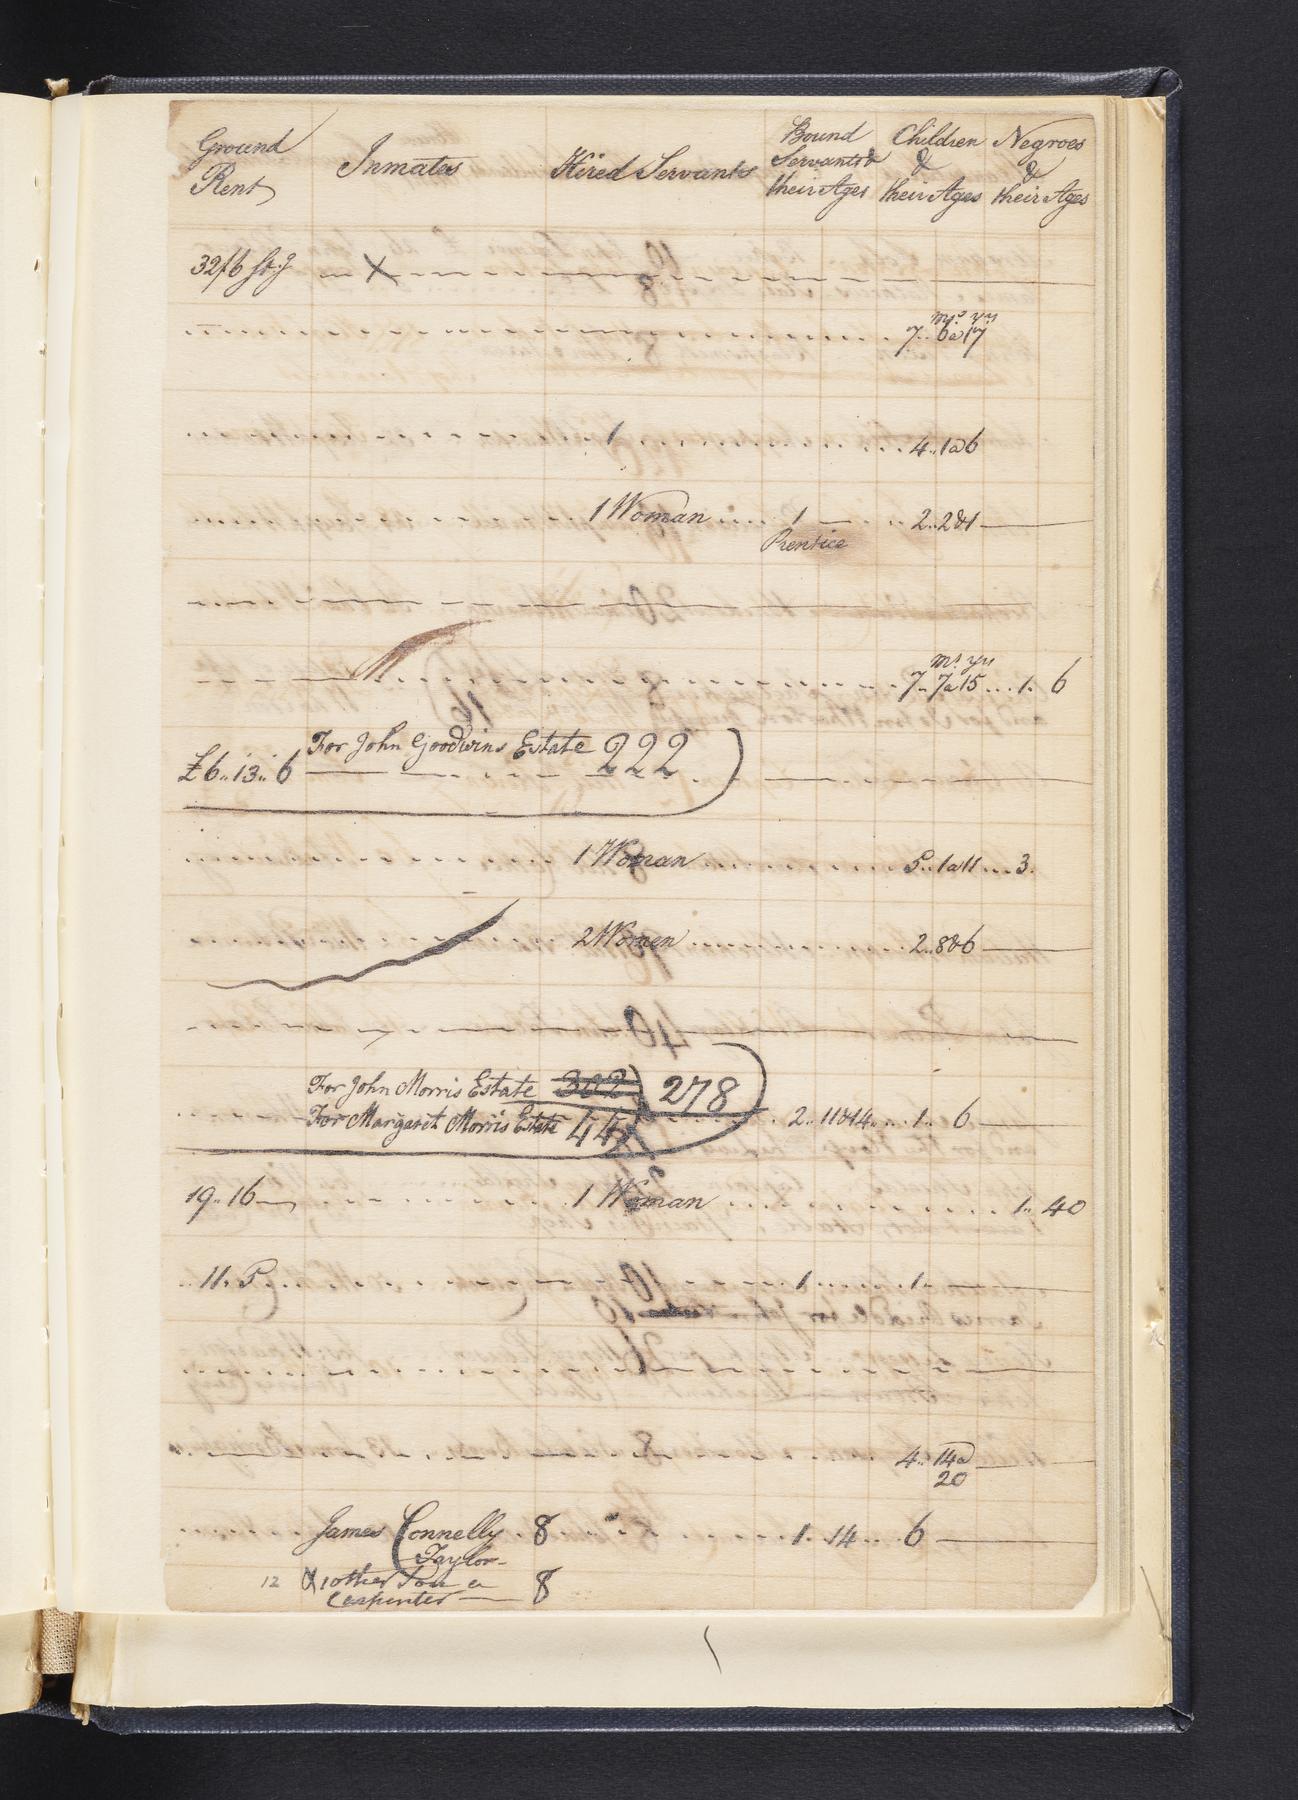 Ground Rent
Inmates
Hired Servants
Bound Servants & their Ages
Children & their Ages
Negroes & their Ages
32/6 St:g X
ms yrs
7.. 6 a 17
1 4.. 1 a 6
1 Woman 1 2.. 2 & 1
Prentice
ms yrs
7.. 7 a 15 1. 6
For John Goodwins Estate 222
£6.. 13.. 6
1 Woman 5.. 1 a 11 3.
2 Women 2.. 8 & 6
For John Morris Estate 302 278
For Margaret Morris Estate 44 2.. 11 & 14 1.. 6
19.. 16 1 Woman 1.. 40
11.. 5 1 1
4.. 14 a
20
James Connelly 8 1. 14 6
Taylor
12 X 1 other Son a 8
Carpenter